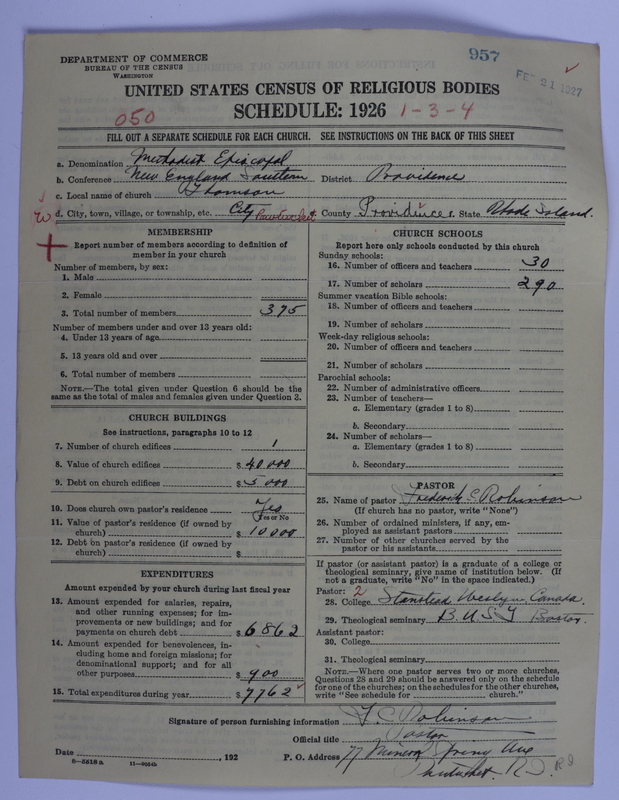 957
FEB 21 1927
DEPARTMENT OF COMMERCE
BUREAU OF THE CENSUS
WASHINGTON
UNITED STATES CENSUS OF RELIGIOUS BODIES
SCHEDULE: 1926
050
1-3-4
FILL OUT A SEPARATE SCHEDULE FOR EACH CHURCH. SEE INSTRUCTIONS ON THE BACK OF THIS SHEET
a. Denomination Methodist Episcopal
b. Conference New England Southern District Providence
c. Local name of church Thomson
d. City, town, village, or township, etc. City Pawtucket County Providence f. State Rhode Island.
MEMBERSHIP
Report number of members according to definition of
member in your church
Number of members, by sex:
1. Male
2. Female
3. Total number of members 375
Number of members under and over 13 years old:
4. Under 13 years of age
5. 13 years old and over
6. Total number of members
NOTE.—The total given under Question 6 should be the
same as the total of males and females given under Question 3.
CHURCH BUILDINGS
See instructions, paragraphs 10 to 12
7. Number of church edifices 1
8. Value of church edifices $ 40000
9. Debt on church edifices $ 5000
10. Does church own pastor's residence Yes
Yes or No
11. Value of pastor's residence (if owned by
church) $ 10000
12. Debt on pastor's residence (if owned by
church) $
EXPENDITURES
Amount expended by your church during last fiscal year
13. Amount expended for salaries, repairs,
and other running expenses; for im-
provements or new buildings; and for
payments on church debt $ 6862
14. Amount expended for benevolences, in-
cluding home and foreign missions; for
denominational support; and for all
other purposes $ 900
15. Total expenditures during year $ 7762
CHURCH SCHOOLS
Report here only schools conducted by this church
Sunday schools:
16. Number of officers and teachers 30
17. Number of scholars 290
Summer vacation Bible schools:
18. Number of officers and teachers
19. Number of scholars
Week-day religious schools:
20. Number of officers and teachers
21. Number of scholars
Parochial schools:
22. Number of administrative officers
23. Number of teachers—
a. Elementary (grades 1 to 8)
b. Secondary
24. Number of scholars—
a. Elementary (grades 1 to 8)
b. Secondary
PASTOR
25. Name of pastor Frederick C. Robinson
(If church has no pastor, write "None")
26. Number of ordained ministers, if any, em-
ployed as assistant pastors
27. Number of other churches served by the
pastor or his assistants
If pastor (or assistant pastor) is a graduate of a college or
theological seminary, give name of institution below. (If
not a graduate, write "No" in the space indicated.)
Pastor: 2
28. College Stanstead Weslyn Canada.
29. Theological seminary B.U.S.T Boston.
Assistant pastor:
30. College
31. Theological seminary
NOTE.—Where one pastor serves two or more churches,
Questions 28 and 29 should be answered only on the schedule
for one of the churches; on the schedules for the other churches,
write "See schedule for church."
Signature of person furnishing information F C Robinson
Official title Pastor
Date , 192 P. O. Address 77 Mineral Spring Ave
Pawtucket. R.I. R.I
8—5518a 11—9054b